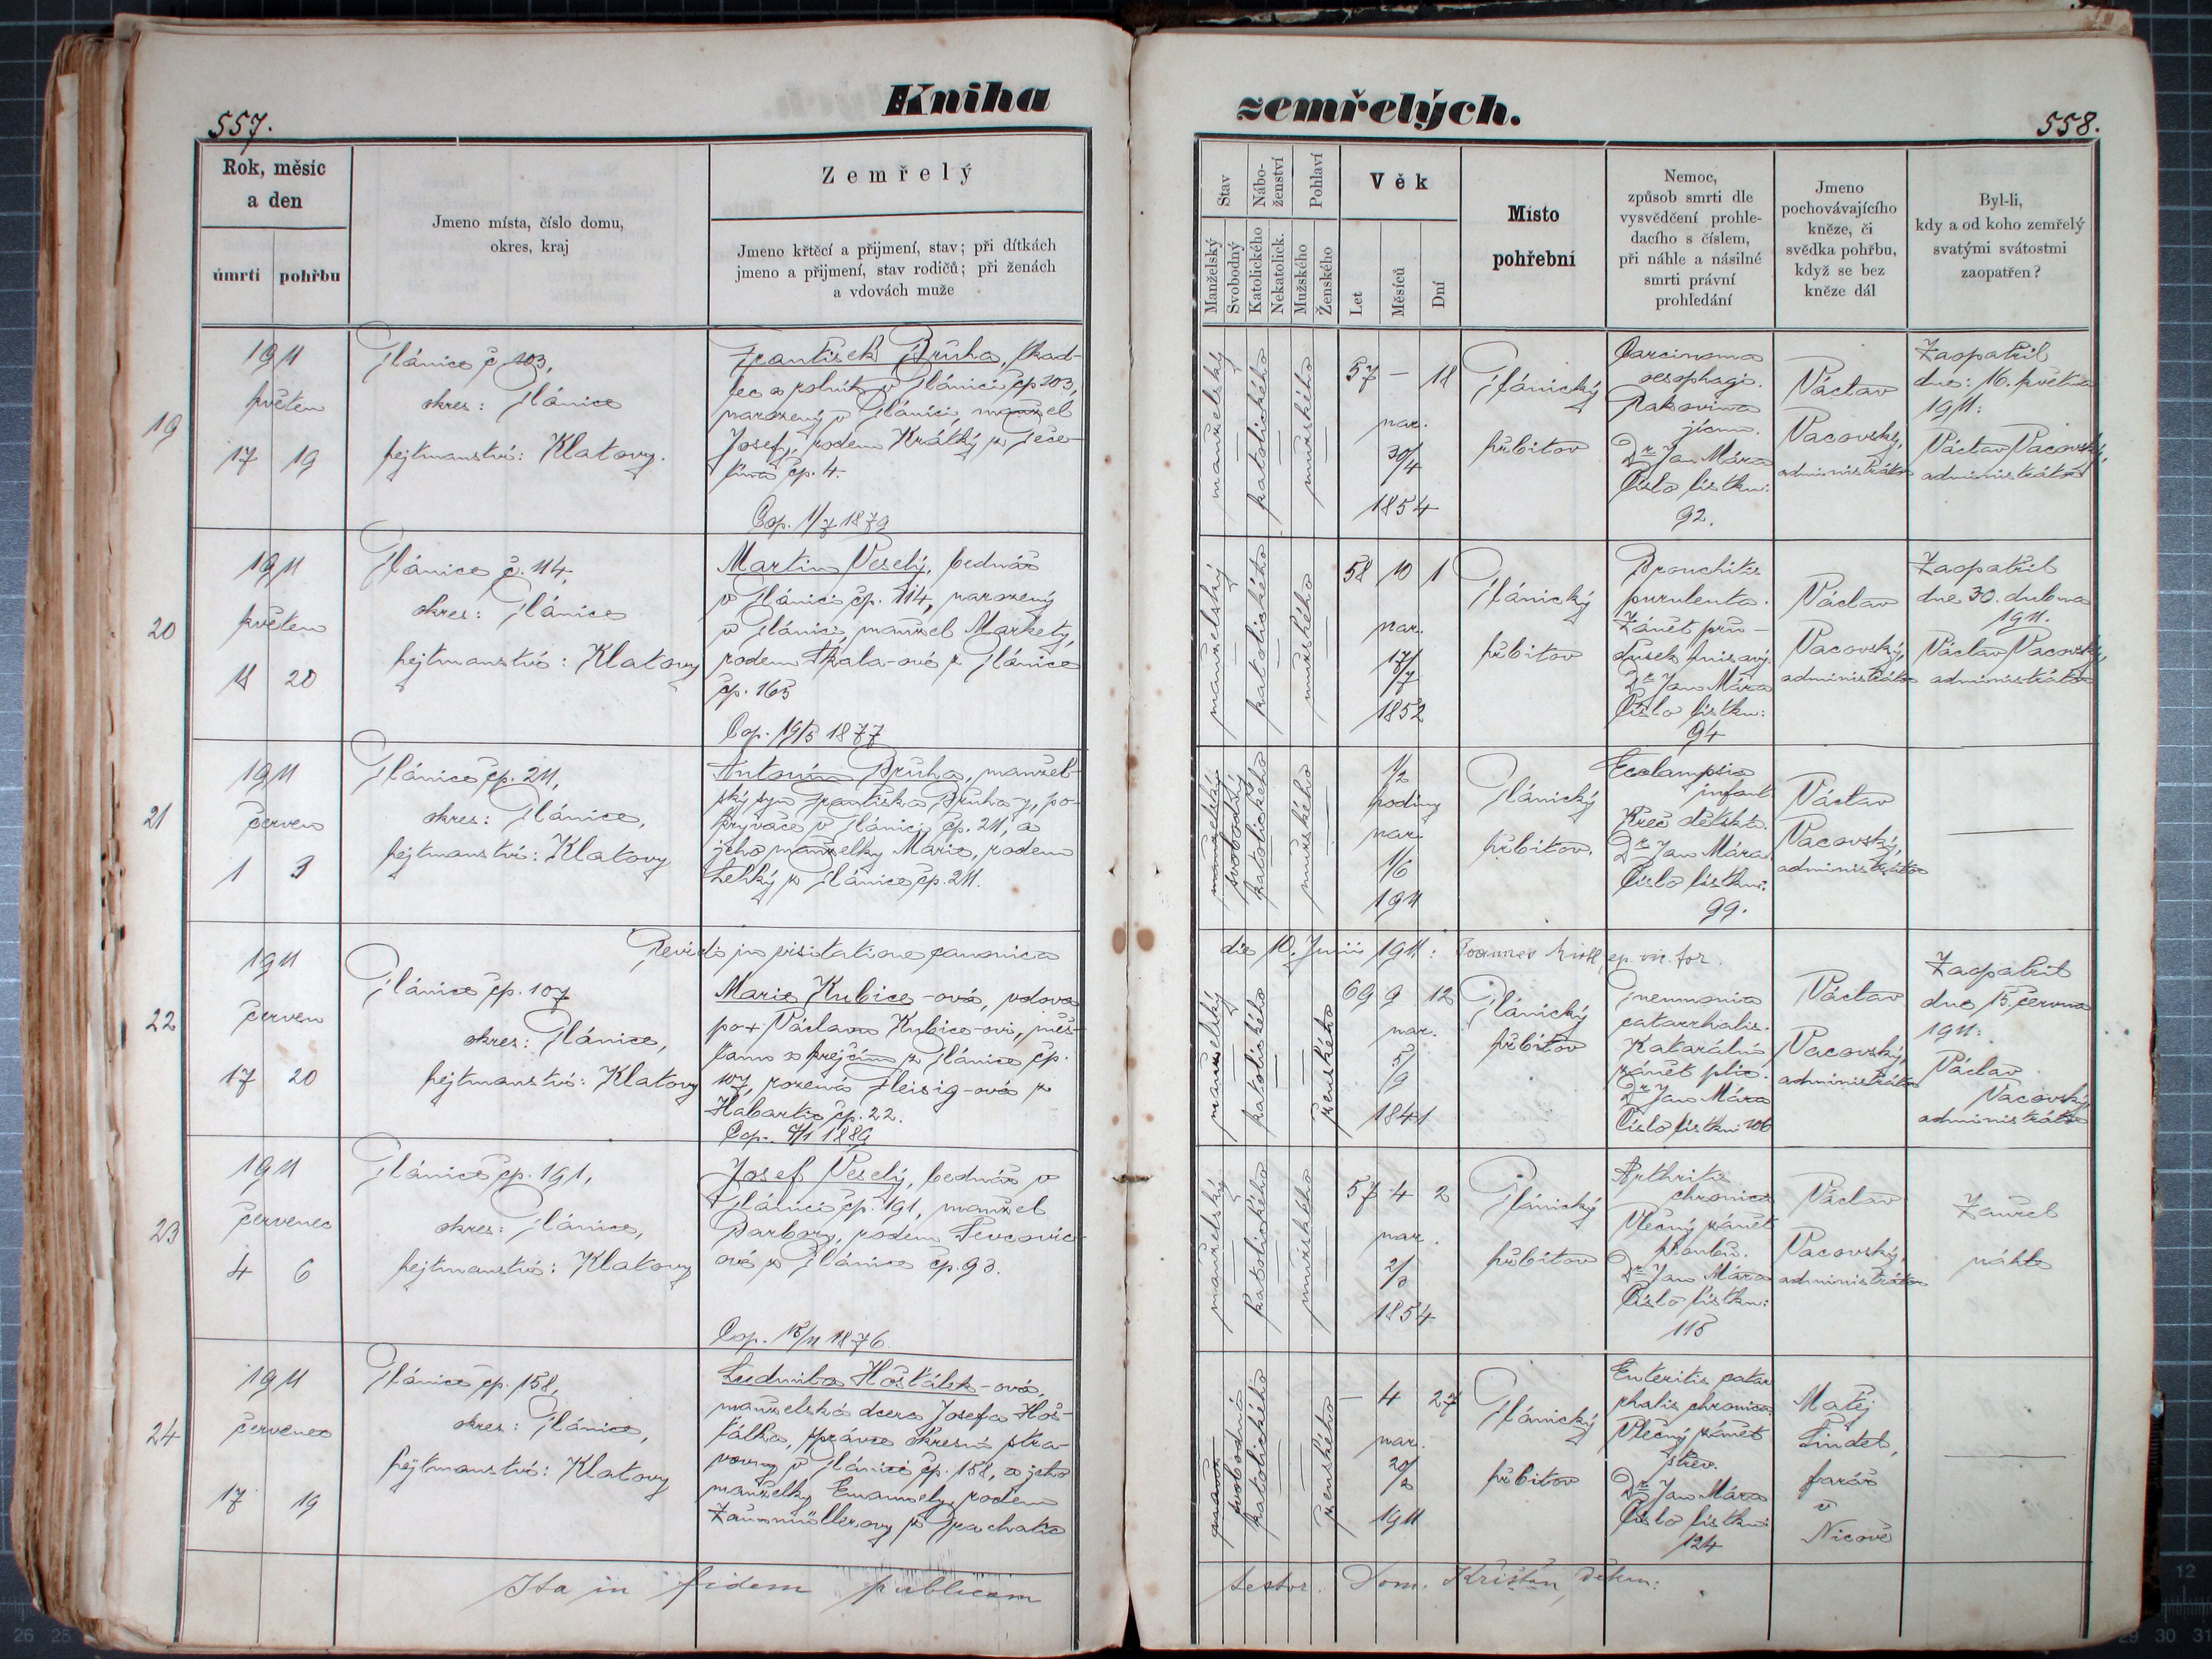 Kniha zemřelých.
557.
558.
Rok, měsíc
a den
úmrtí
pohřbu
Jmeno místa, číslo domu,
okres, kraj
Zemřelý
Jmeno křtěcí a přijmení, stav; při dítkách
jmeno a přijmení, stav rodičů; při ženách
a vdovách muže
Stav
Manželský
Svobodný
Nábo-
ženství
Katolického
Nekatolick.
Pohlaví
Mužského
Ženského
Věk
Let
Měsíců
Dní
Místo
pohřební
Nemoc,
způsob smrti dle
vysvědčení prohle-
dacího s číslem,
při náhle a násilné
smrti právní
prohledání
Jmeno
pochovávajícího
kněze, či
svědka pohřbu,
když se bez
kněze dál
Byl-li,
kdy a od koho zemřelý
svatými svátostmi
zaopatřen?
19
1911
květen
17 19
Plánice č 203,
okres: Plánice
hejtmanství: Klatovy.
František Průha, tkad-
lec a rolník v Plánici čp 203,
narozený v Plánici, manžel
Josefy, rodem Krátký z
čp. 4.
Cop. 1/7 1879
manželský
katolického
mužského
57 — 18
nar.
30/4
1854
Plánický
hřbitov
Carcinoma
oesophagi.
Rakovina
jícnu.
Dr Jan Mára
Číslo lístku:
92.
Václav
Vacovský,
administrátor
Zaopatřil
dne: 16. května
1911:
Václav Vacovský,
administrátor
20
1911
květen
18 20
Plánice č. 114,
okres: Plánice
hejtmanství: Klatovy
Martin Veselý, bednář
v Plánici čp. 114, narozený
v Plánici, manžel Markéty,
rodem Skala-ové z Plánice
čp. 163
Cop. 19/5 1877
manželský
katolického
mužského
58 10 1
nar.
17/7
1852
Plánický
hřbitov
Bronchitis
purulenta.
Zánět prů-
dušek hnisavý.
Dr Jan Mára
Číslo lístku:
94
Václav
Vacovský,
administrátor
Zaopatřil
dne 30. dubna
1911.
Václav Vacovský,
administrátor
21
1911
červen
1 3
Plánice čp. 211,
okres: Plánice,
hejtmanství: Klatovy
Antonín Průha, manžel-
ský syn Františka Průha-y, po-
krývače v Plánici čp. 211, a
jeho manželky Marie, rodem
Lehký z Plánice čp. 211.
svobodný
katolického
mužského
1/2
hodiny
nar.
1/6
1911
Plánický
hřbitov.
Ecclampsia
infant
Křeč dětská.
Dr Jan Mára
Číslo lístku:
99.
Václav
Vacovský,
administrátor
Revidi in visitatione canonica
die 10. Junii 1911: vic. for.
22
1911
červen
17 20
Plánice čp. 107
okres: Plánice,
hejtmanství: Klatovy
Marie Kubice-ová, vdova
po + Václavu Kubice-ovi, měš-
ťanu a krejčím z Plánice čp.
107, rozená Fleisig-ová z
Habartic čp. 22.
Cop. 7/1 1889
manželský
katolického
ženského
69 9 12
nar.
5/9
1841
Plánický
hřbitov
Pneumonia
catarrhalis.
Katarální
zánět plic.
Dr Jan Mára
Číslo lístku 106
Václav
Vacovský,
administrátor
Zaopatřil
dne 15. června
1911:
Václav
Vacovský,
administrátor
23
1911
červenec
4 6
Plánice čp. 191,
okres: Plánice,
hejtmanství: Klatovy
Josef Veselý, bednář v
Plánici čp. 191, manžel
Barbory, rodem Ševcovic-
ové z Plánice čp. 93.
Cop. 15/11 1876.
manželský
katolického
mužského
57 4 2
nar.
2/3
1854
Plánický
hřbitov
Arthritis
chronica
Vlečný zánět
kloubů.
Dr Jan Mára
Číslo lístku:
115
Václav
Vacovský,
administrátor
Zemřel
náhle
24
1911
červenec
17 19
Plánice čp. 158,
okres: Plánice,
hejtmanství: Klatovy
Ludmila Hošťálek-ová,
manželská dcera Josefa Hoš-
ťálka, správce okresní stra-
vovny v Plánici čp. 158, a jeho
manželky Emanuely, rodem
z Prachatic
svobodná
katolického
ženského
— 4 27
nar.
20/2
1911
Plánický
hřbitov
Enteritis catar
rhalis chronica.
Vlečný zánět
střev.
Dr Jan Mára
Číslo lístku:
124
Matěj
Šindel,
farář
v
Nicově
Ita in fidem publicam
testor. Dom. Křištan, děkan: